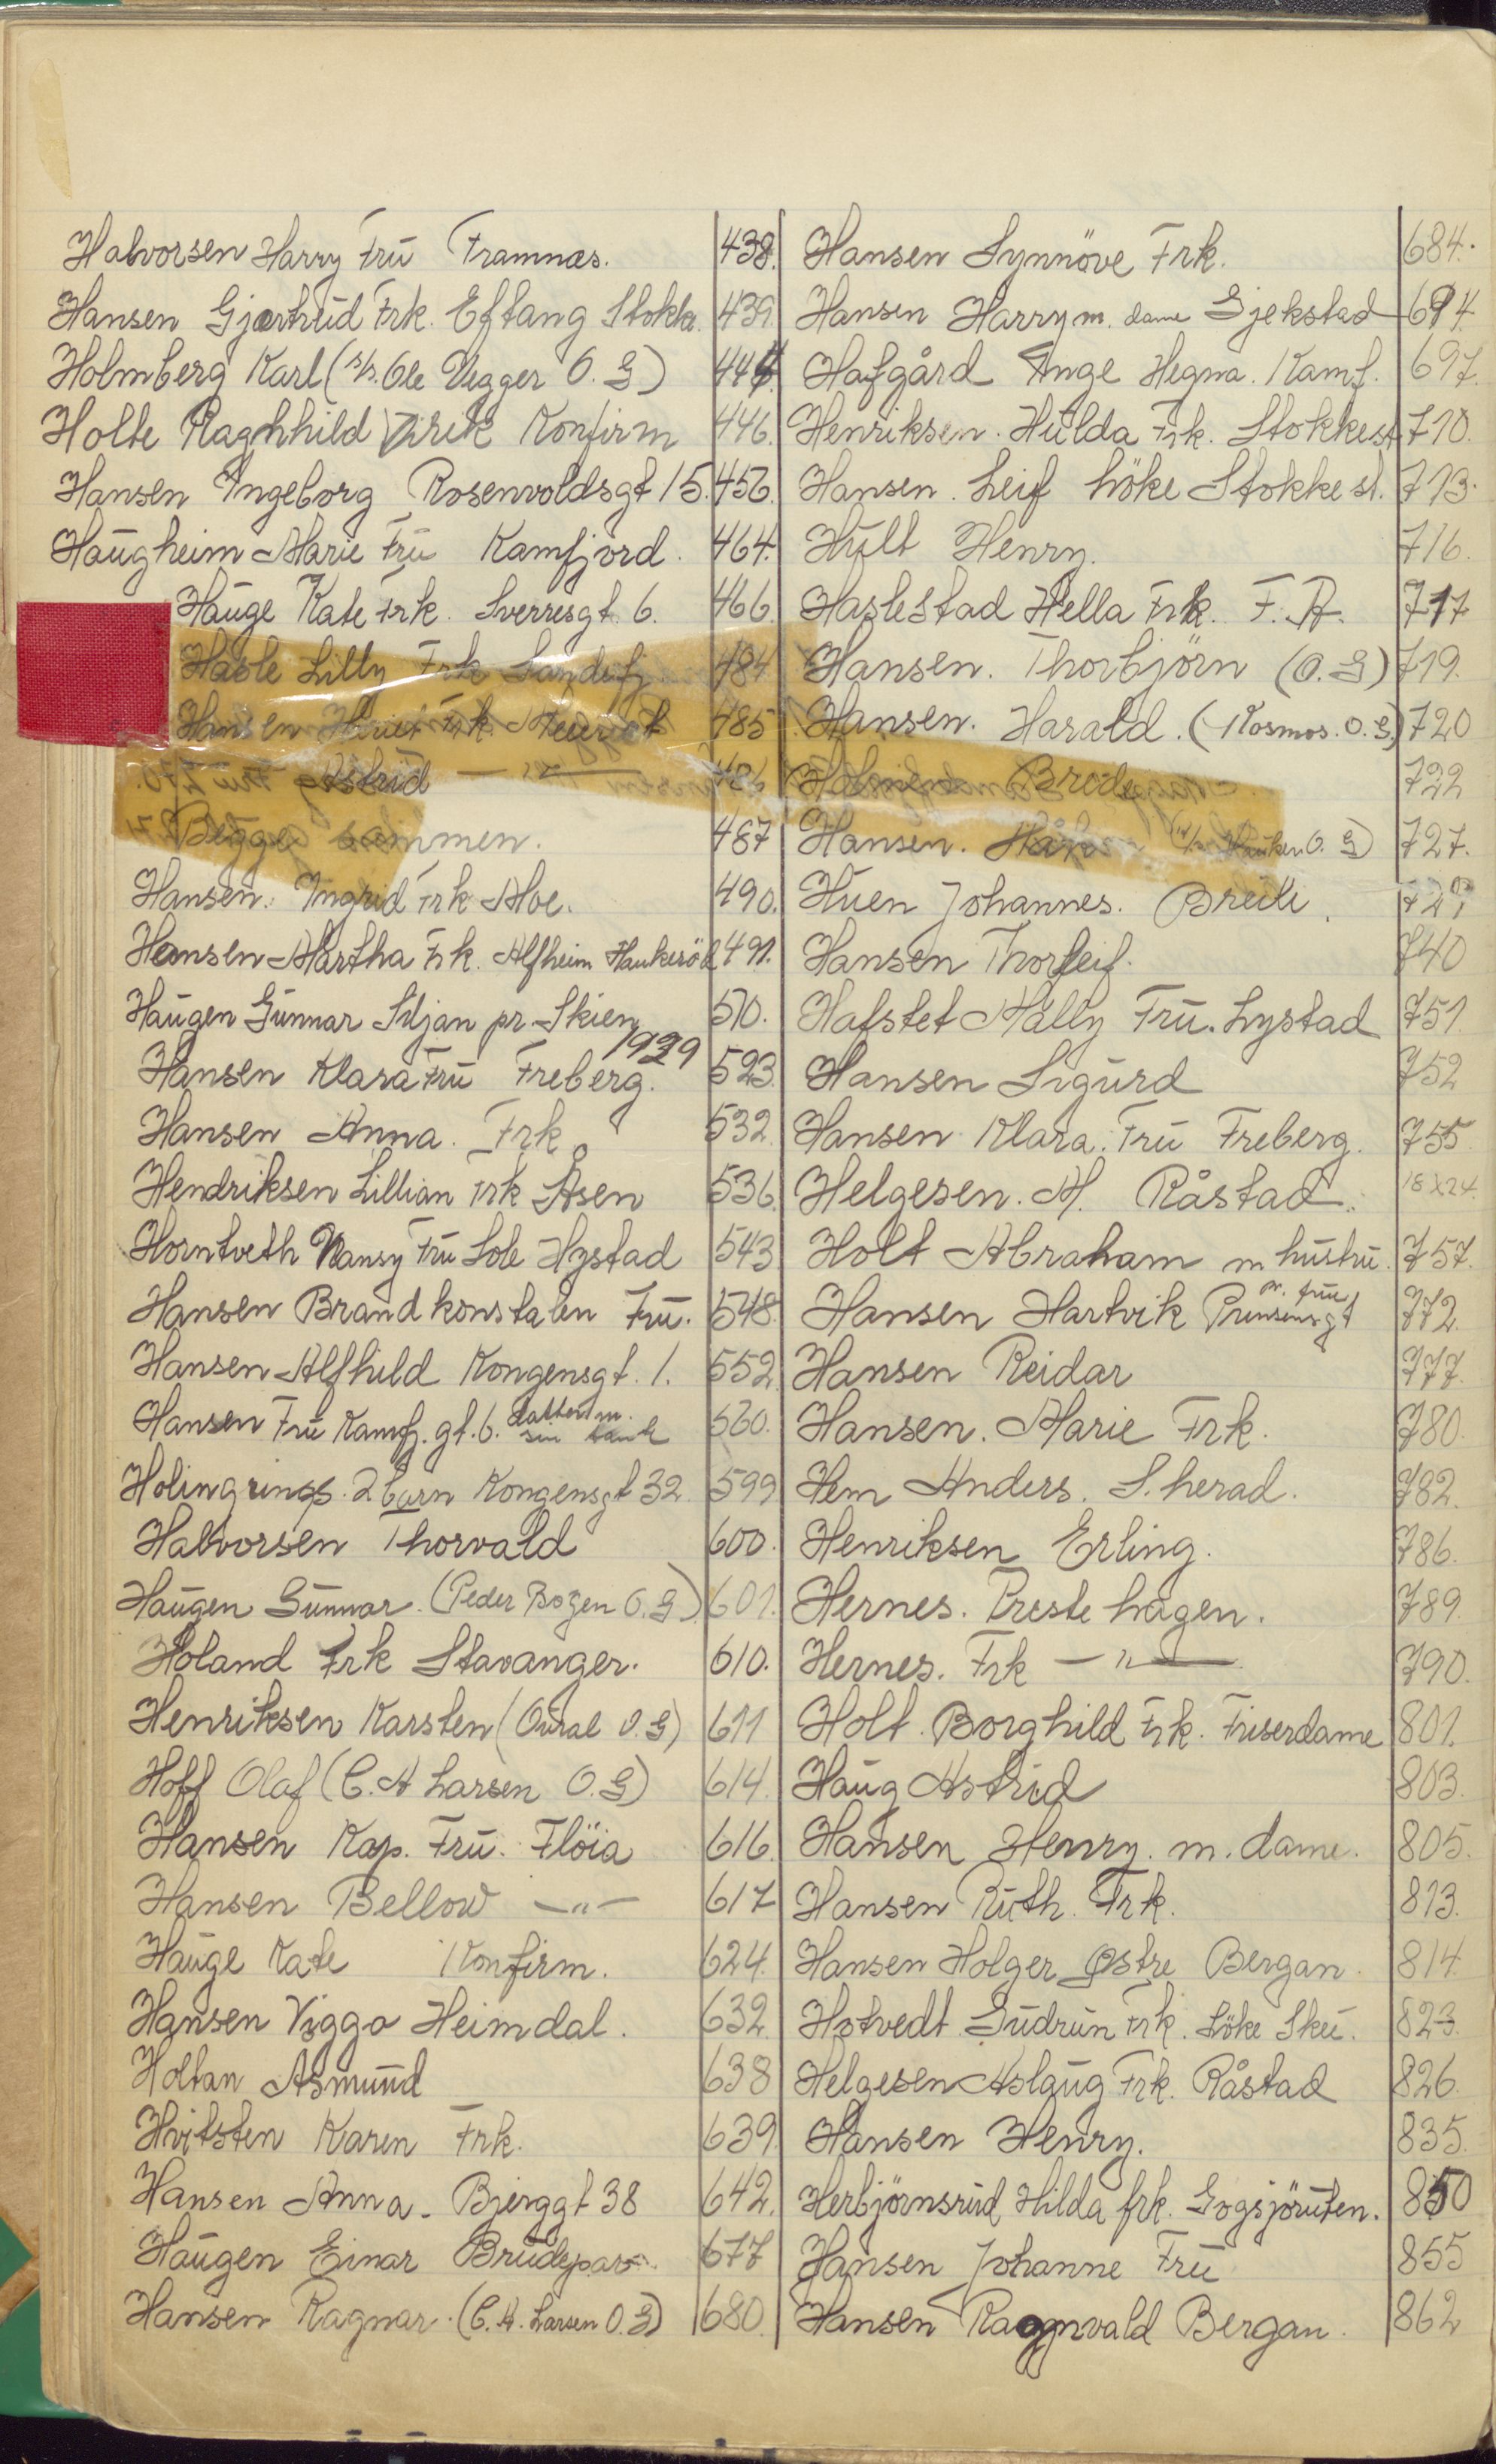 Halvorsen Harry Frū Framnæs. 438.
Hansen Gjærtrūd Frk. Eftang Stokke. 439.
Holmberg Karl (s/s. Ole Vegger O. G) 444.
Holte Ragnhild Konfirm 446.
Hansen Ingeborg Rosenvoldsgt 15. 456.
Haūgheim Marie Frū Kamfjord. 464.
Haūge Kate Frk. Sverresgt. 6. 466.
Hasle Lilly Frk Sandefj 484
Hansen Frk 485
Astrid — " — 486
Begge sammen. 487
Hansen. Ingrid Frk Moe. 490.
Hansen Martha Frk. Alfheim Haukerød 491.
Haūgen Gūnnar Siljan pr. Skien 570.
1929
Hansen Klara Frū Freberg. 523.
Hansen Anna. Frk. 532.
Hendriksen Lillian Frk Åsen 536.
Horntveth Nansy Frū Sole Hystad 543
Hansen Brandkonstaben Frū. 548.
Hansen Alfhild Kongensgt. 1. 552.
Hansen Frū Kamfj. gt. 6. datter m. 560.
2 barn Kongensgt 32. 599
Halvorsen Thorvald 600.
Haūgen Gūnnar. (Peder Bogen O. G). 601.
Holand Frk Stavanger. 610.
Henriksen Karsten (Oural O. G) 611
Hoff Olaf (C. A Larsen O. G) 614.
Hansen Kap. Frū. Flöia 616.
Hansen Bellow — " — 617
Haūge Kate Konfirm. 624.
Hansen Viggo Heimdal. 632.
Holtan Asmūnd 638
Hvitsten Karen Frk. 639.
Hansen Anna. Bjerggt 38 642.
Haūgen Einar Brūdepar. 677
Hansen Ragnar. (C. A. Larsen O. G) 680.
Hansen Synnöve Frk. 684.
Hansen Harry m. dame Gjekstad 694
Hafgård Inge Hegna. Kamf. 697.
Henriksen. Hūlda Frk. Stokke st. 710.
Hansen. Leif höke Stokke st. 713.
Hūlt Henry. 716.
Haslestad Hella Frk. F. R. 717
Hansen. Thorbjörn (O. G) 719.
Hansen. Harald. (Kosmos. O. G.) 720
722
Hansen. O. G) 727.
Hūen Johannes. Breili.
Hansen Thorleif. 740
Hafstet Mally Frū. Lystad 751.
Hansen Sigūrd 752
Hansen Klara. Frū Freberg. 755.
Helgesen. A. Råstad. 18x24.
Holt Abraham m hūstrū. 757.
Hansen Hartvik Prinsensgt m. frū 772.
Hansen Reidar 777.
Hansen. Marie Frk. 780.
Hem Anders. S. herad. 782.
Henriksen Erling. 786.
Hernes. Preste hagen. 789.
Hernes. Frk — " — 790.
Holt. Borghild Frk. Friserdame 801.
Haūg Astrid 803.
Hansen Henry. m. dame. 805.
Hansen Rūth. Frk. 813.
Hansen Holger Østre Bergan. 814.
Hotvedt Gūdrūn Frk. Löke Skū. 823.
Helgesen Aslaūg Frk. Råstad 826.
Hansen Henry. 835.
Herbjörnsrūd Hilda frk. Gogsjörūten. 850
Hansen Johanne Frū 855
Hansen Ragnvald Bergan. 862